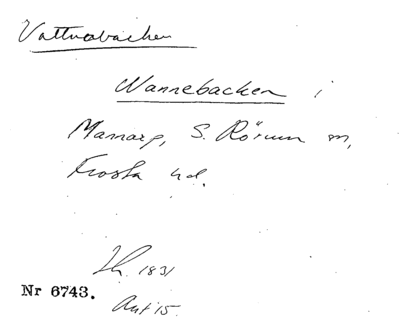 Vattnabacken
Wannebacken i
Mamarp, S. Rörum sn,
Frosta hd.
Lh. 1831
Nr 6743.
Ant 15.